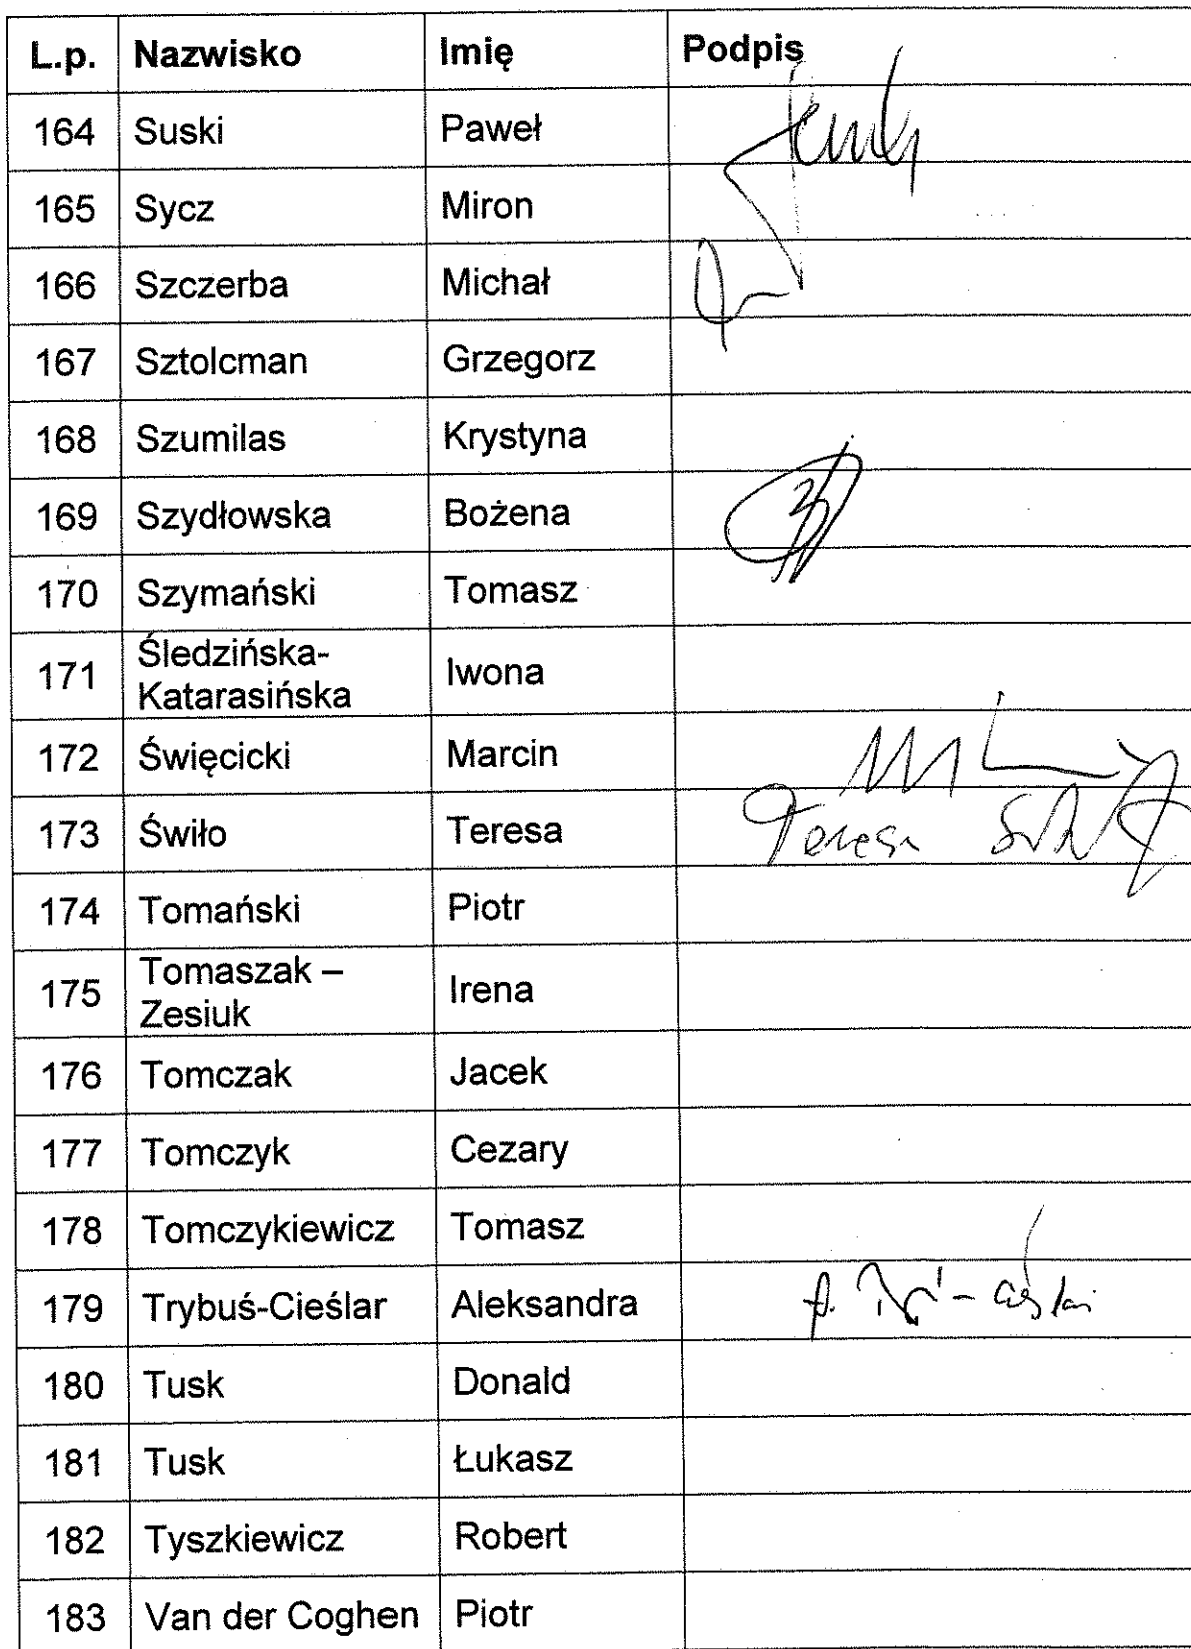 L.p. Nazwisko Imię Podpis
164 Suski Paweł
165 Sycz Miron
166 Szczerba Michał
167 Sztolcman Grzegorz
168 Szumilas Krystyna
169 Szydłowska Bożena
170 Szymański Tomasz
171 Śledzińska-
Katarasińska Iwona
172 Święcicki Marcin
173 Świło Teresa Teresa
174 Tomański Piotr
175 Tomaszak –
Zesiuk Irena
176 Tomczak Jacek
177 Tomczyk Cezary
178 Tomczykiewicz Tomasz
179 Trybuś-Cieślar Aleksandra
180 Tusk Donald
181 Tusk Łukasz
182 Tyszkiewicz Robert
183 Van der Coghen Piotr